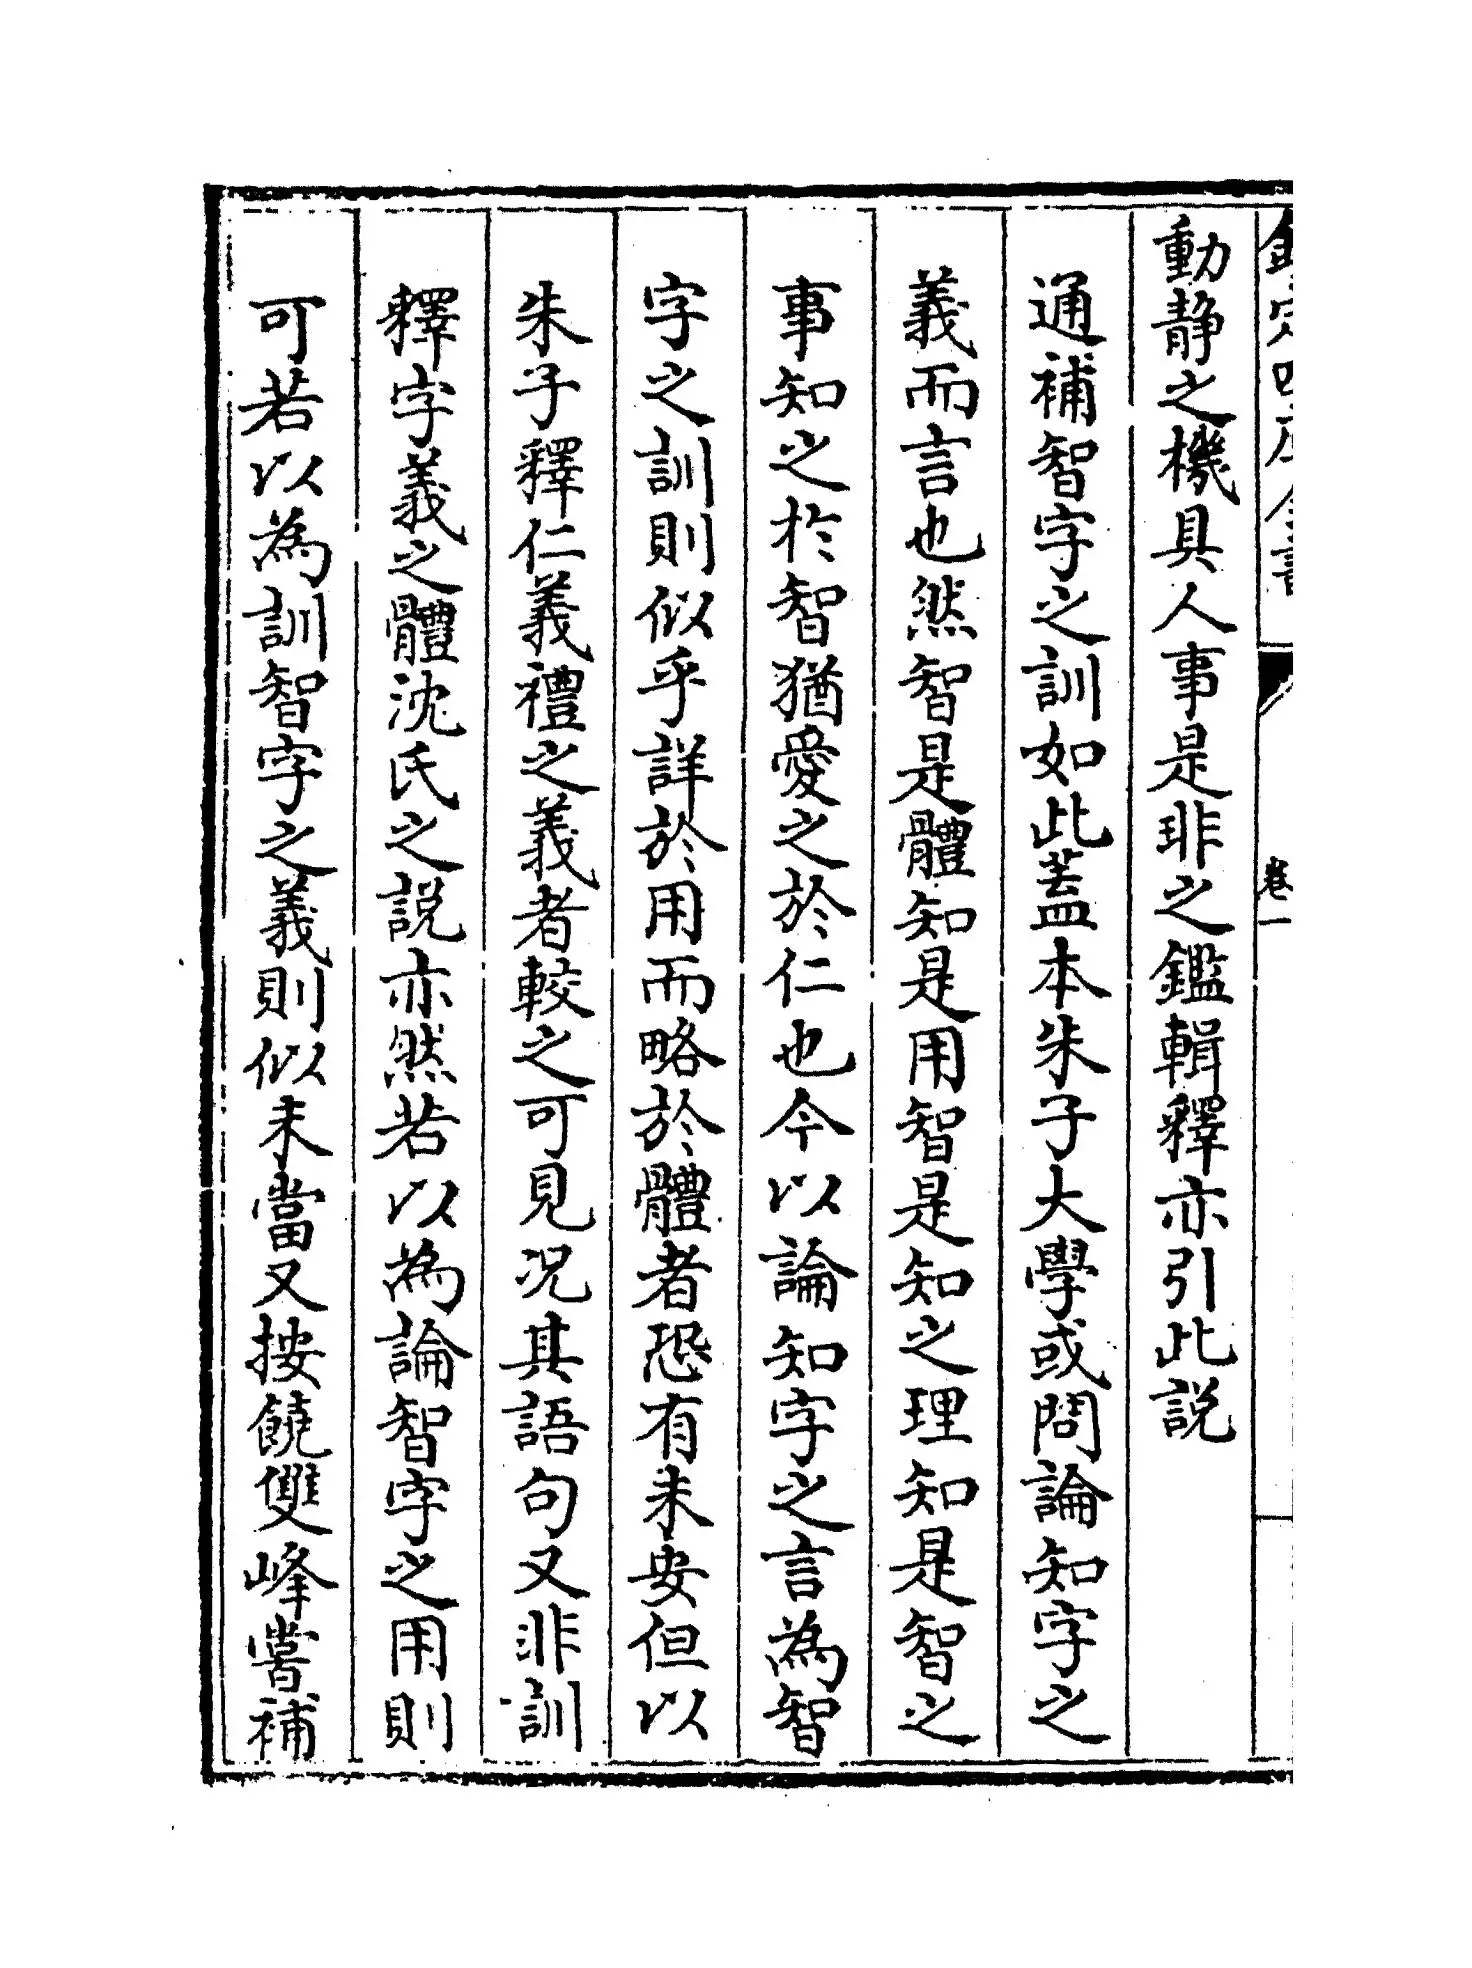 欽定四庫全書
卷一
動静之機具人事是非之鑑輯釋亦引此説
通補智字之訓如此蓋本朱子大學或問論知字之
義而言也然智是體知是用智是知之理知是智之
事知之於智猶愛之於仁也今以論知字之言為智
字之訓則似乎詳於用而略於體者恐有未安但以
朱子釋仁義禮之義者較之可見况其語句又非訓
釋字義之體沈氏之説亦然若以為論智字之用則
可若以為訓智字之義則似未當又按饒雙峰嘗補